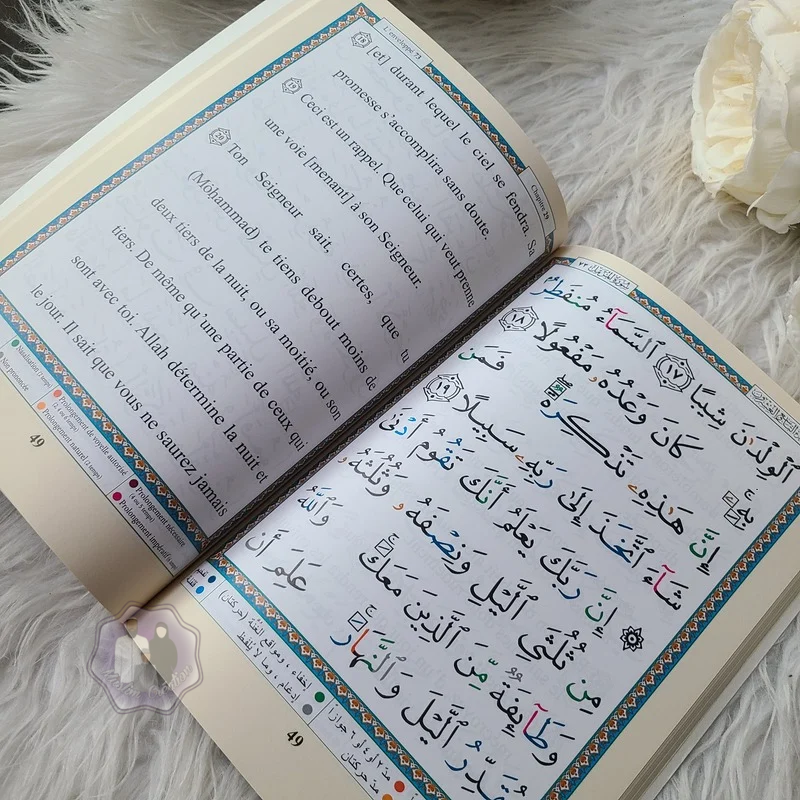 L'enveloppé 73
Chapitre 29
18 [et] durant lequel le ciel se fendra. Sa
promesse s'accomplira sans doute.
19 Ceci est un rappel. Que celui qui veut prenne
une voie [menant] à son Seigneur.
20 Ton Seigneur sait, certes, que tu
(Môhammad) te tiens debout moins de
deux tiers de la nuit, ou sa moitié, ou son
tiers. De même qu'une partie de ceux qui
sont avec toi. Allah détermine la nuit et
le jour. Il sait que vous ne saurez jamais
Nasalisation (2 temps)
Non prononcée
Prolongement de voyelle autorisé
(2, 4 ou 6 temps)
Prolongement naturel (2 temps)
Prolongement nécessaire
(4 ou 5 temps)
Prolongement impératif (6 temps)
49
٧٣
ٱلْوِلْدَٰنَ شِيبًا ١٧ ٱلسَّمَآءُ مُنفَطِرٌۢ
بِهِۦۚ كَانَ وَعْدُهُۥ مَفْعُولًا ١٨
إِنَّ هَٰذِهِۦ تَذْكِرَةٌۖ فَمَن
شَآءَ ٱتَّخَذَ إِلَىٰ رَبِّهِۦ سَبِيلًا ١٩
۞ إِنَّ رَبَّكَ يَعْلَمُ أَنَّكَ تَقُومُ أَدْنَىٰ
مِن ثُلُثَيِ ٱلَّيْلِ وَنِصْفَهُۥ وَثُلُثَهُۥ
وَطَآئِفَةٌ مِّنَ ٱلَّذِينَ مَعَكَۚ وَٱللَّهُ
يُقَدِّرُ ٱلَّيْلَ وَٱلنَّهَارَۚ عَلِمَ أَن
إخفاء ، ومواقع الغُنَّة (حركتان)
إدغام ، وما لا يُلفظ
مدّ ٢ أو ٤ أو ٦ جوازًا
مدّ حركتان
49